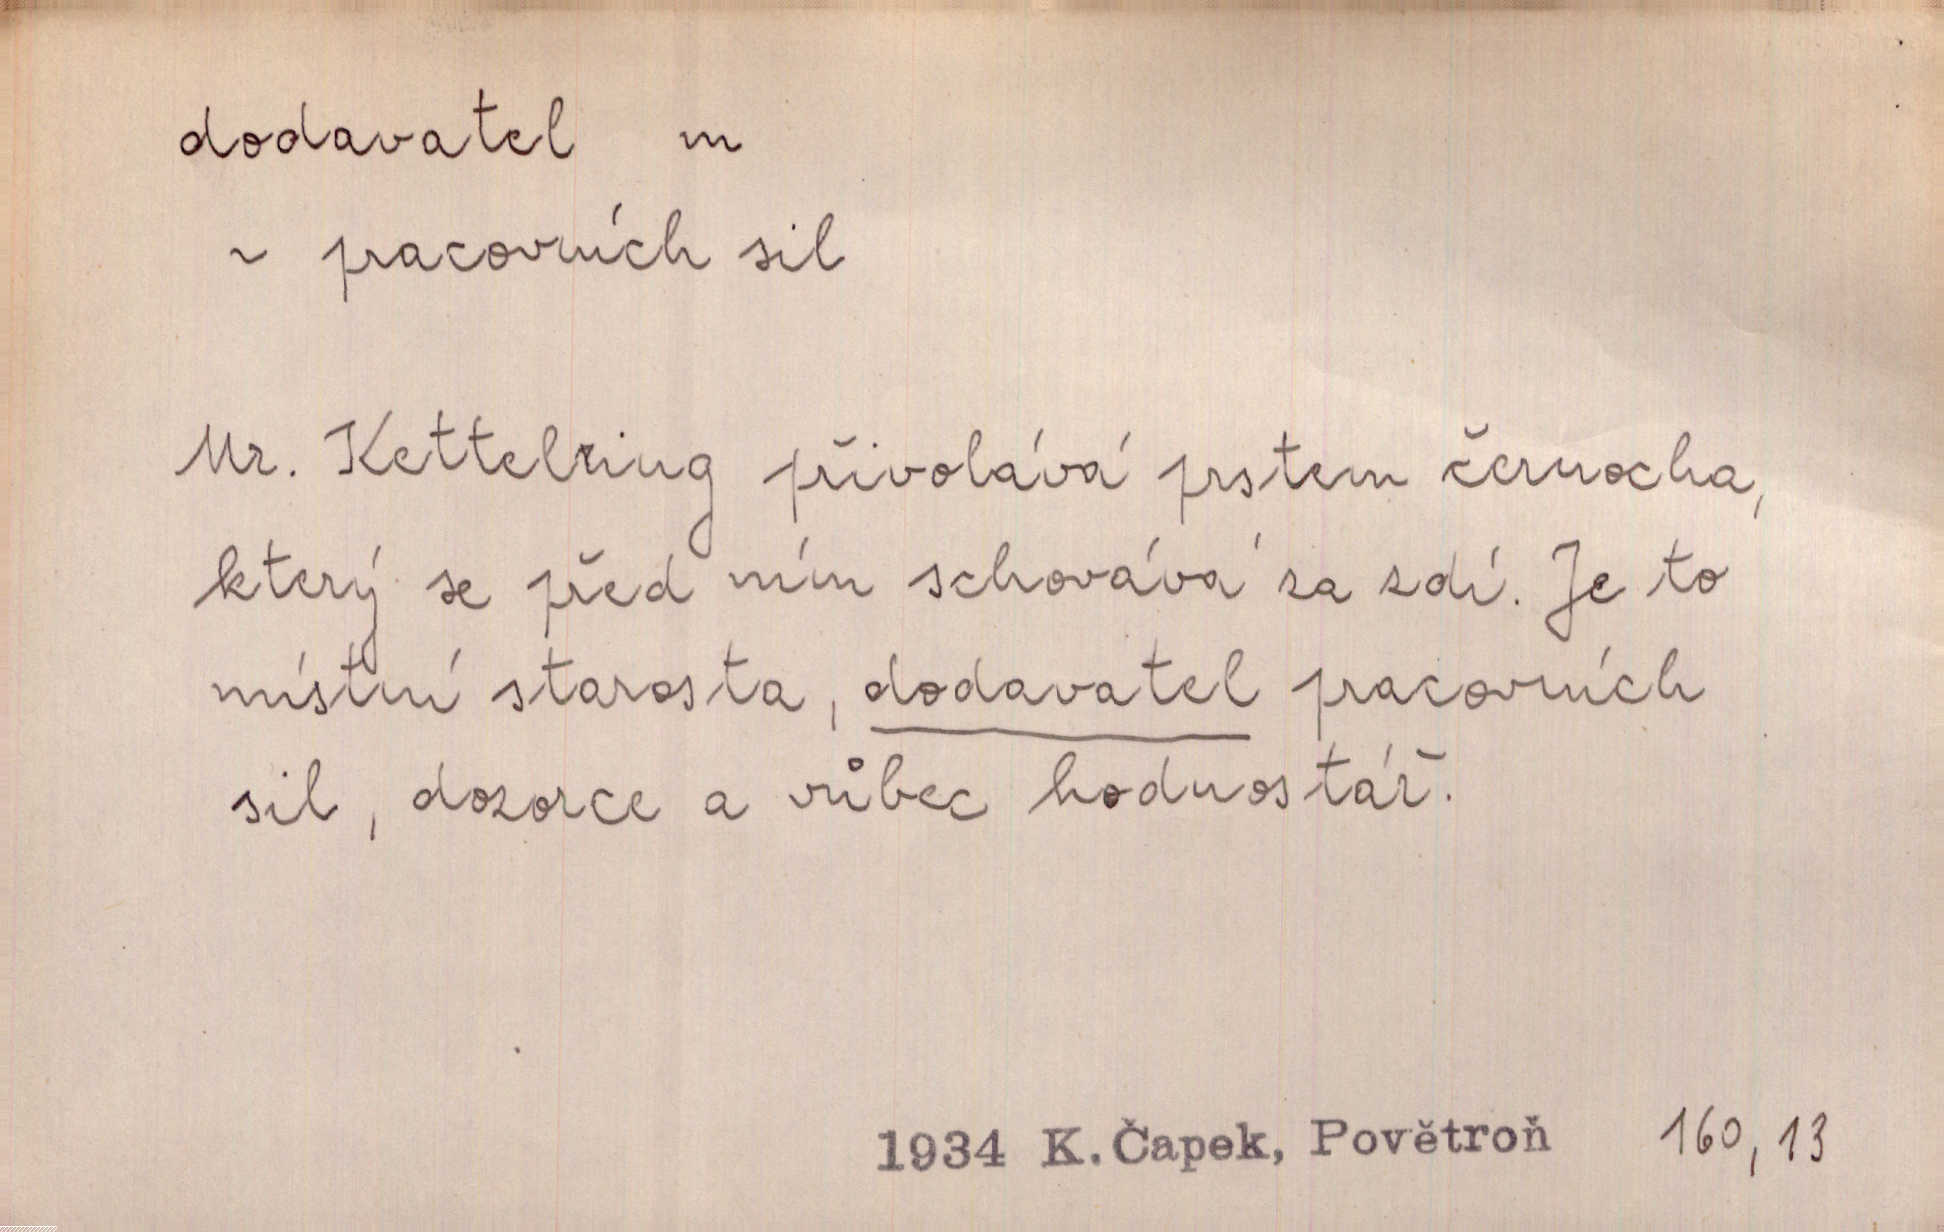 dodavatel m
~ pracovních sil
Mr. Kettelring přivolává prstem černocha,
který se před ním schovává za zdí. Je to
místní starosta, dodavatel pracovních
sil, dozorce a vůbec hodnostář.
1934 K. Čapek, Povětroň 160, 13